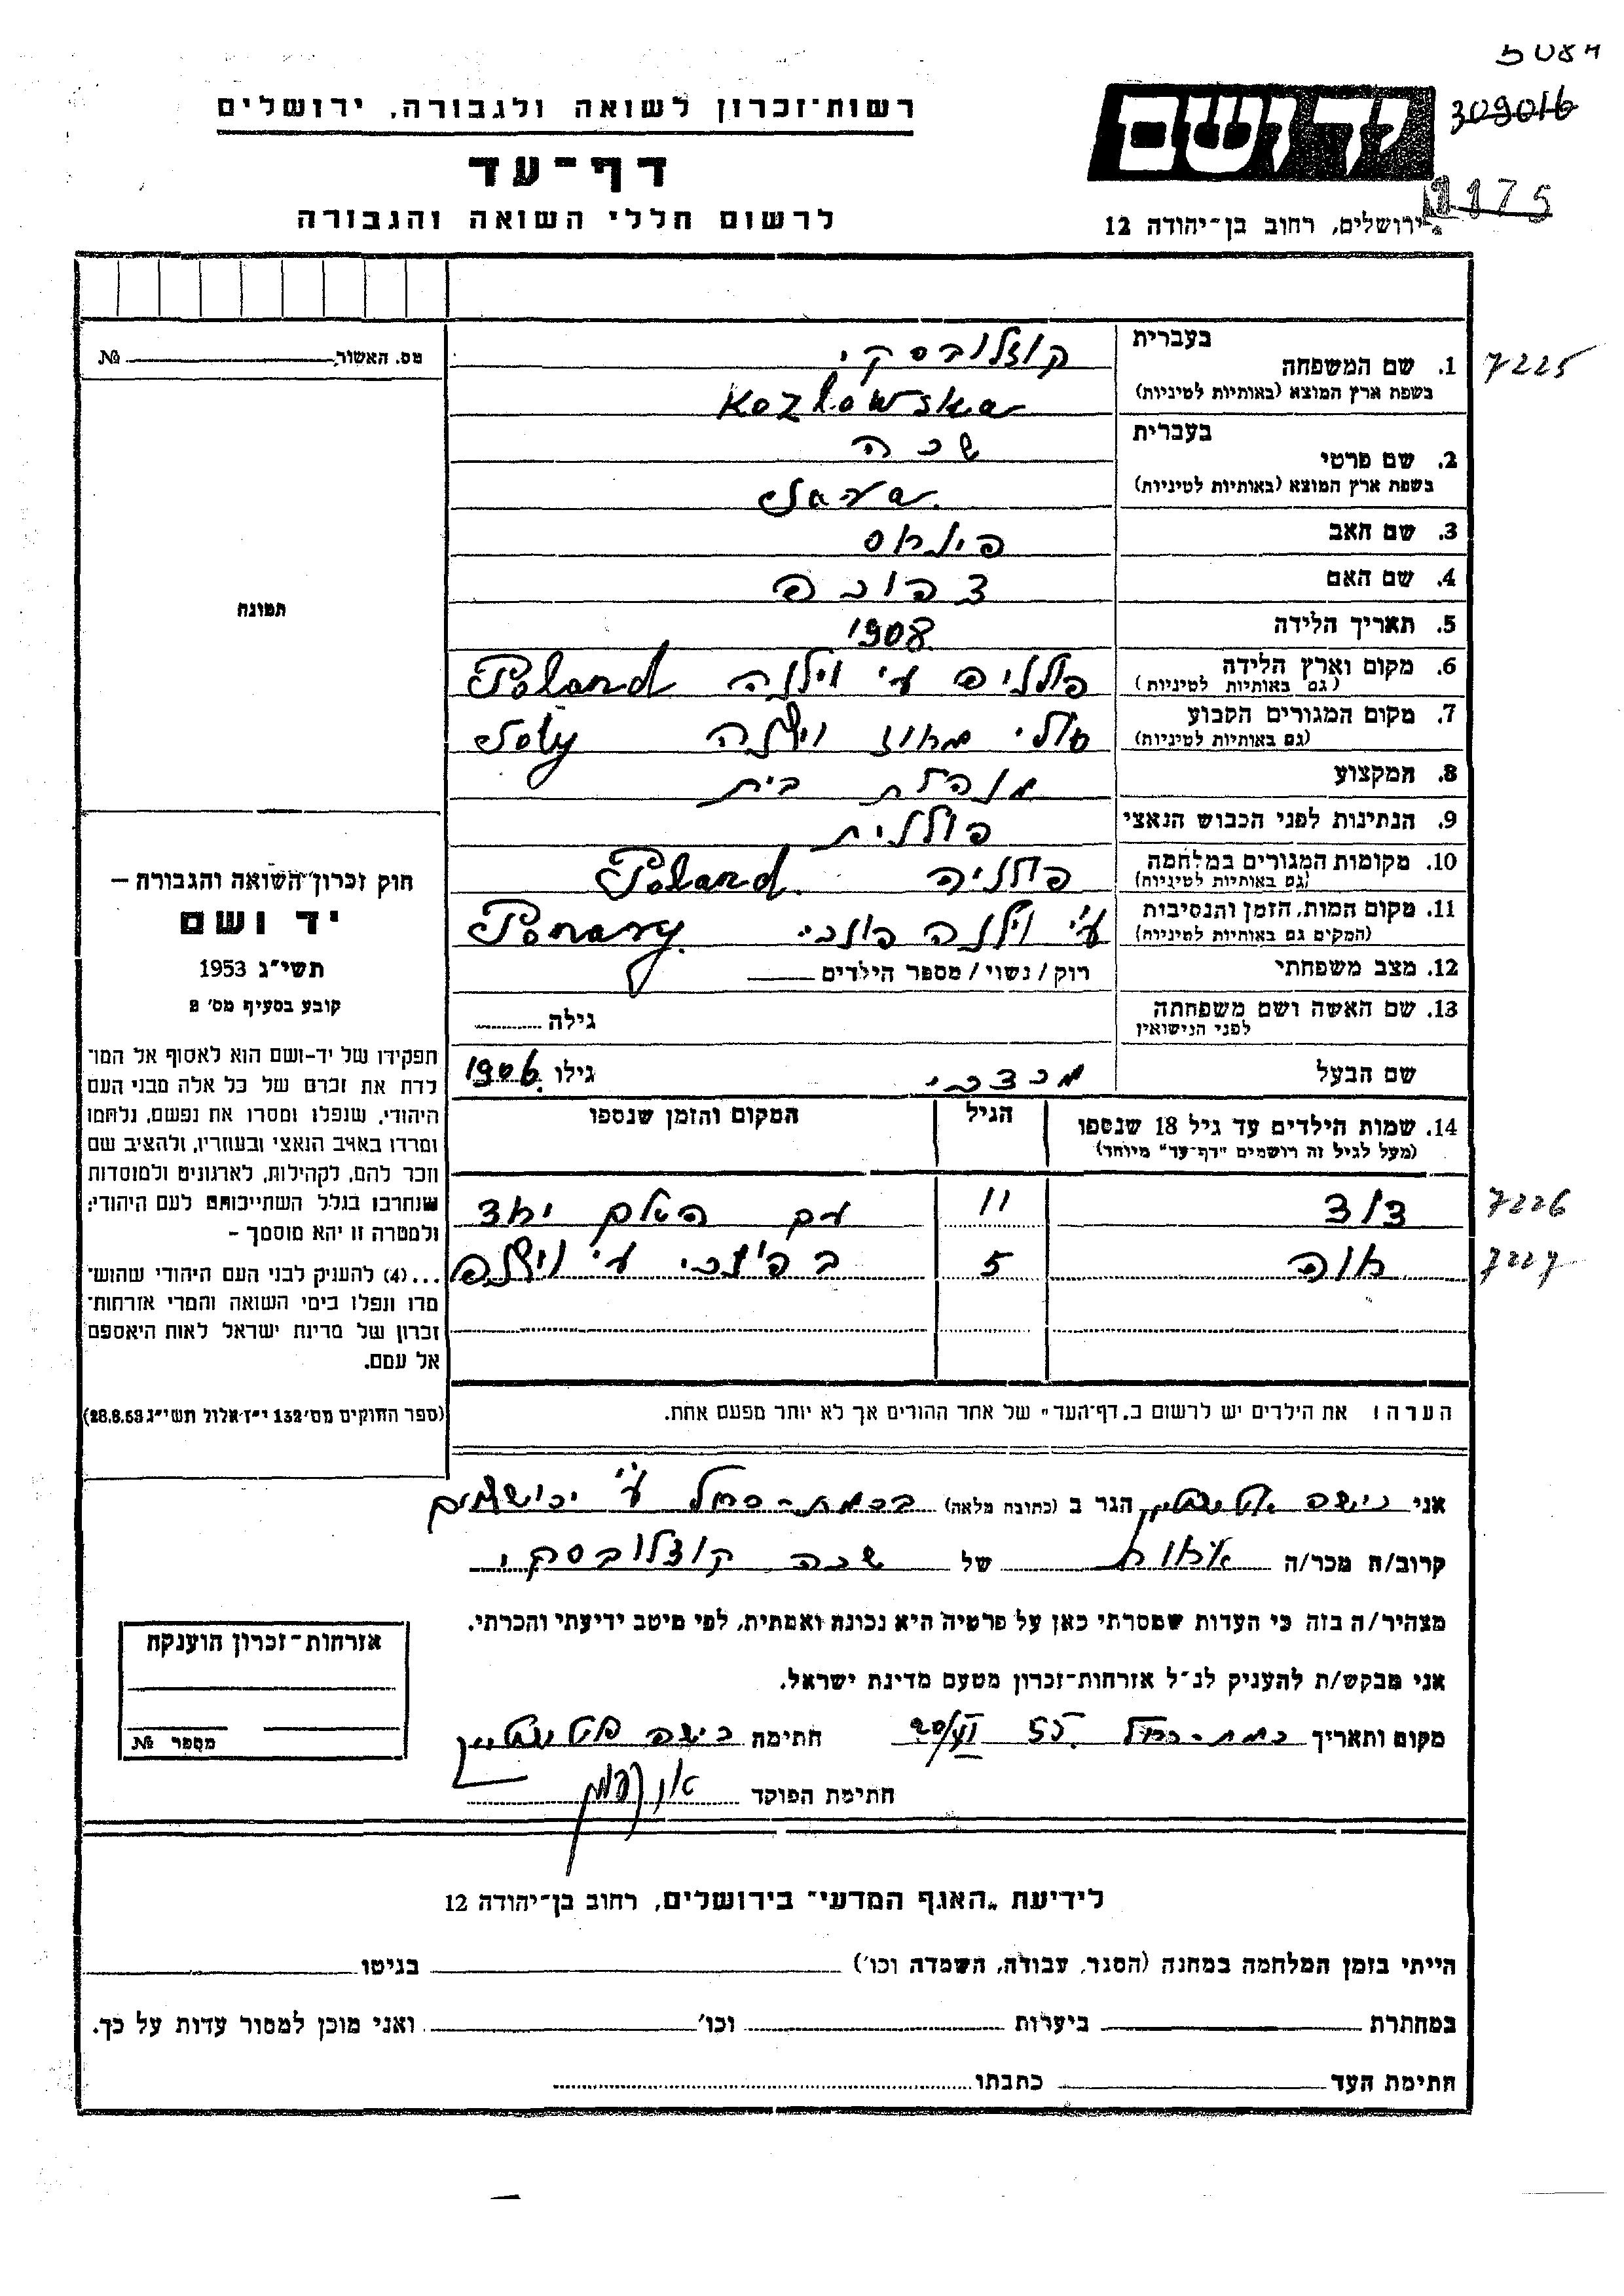 5084
309016
רשות־זכרון לשואה ולגבורה, ירושלים
יד ושם
דף־עד
1175
לרשום חללי השואה והגבורה
ירושלים, רחוב בן־יהודה 12
מס. האשור № 
בעברית
1. שם המשפחה קוזלובסקי
7225
בשפת ארץ המוצא (באותיות לטיניות) Kozłowska
בעברית
2. שם פרטי שרה
בשפת ארץ המוצא (באותיות לטיניות)
3. שם האב פינחס
4. שם האם
תמונה
5. תאריך הלידה 1908
6. מקום וארץ הלידה ע"י וילנה Poland
(גם באותיות לטיניות)
7. מקום המגורים הקבוע סולי מחוז וילנה Soły
(גם באותיות לטיניות)
8. המקצוע מנהלת בית
9. הנתינות לפני הכבוש הנאצי פולנית
10. מקומות המגורים במלחמה פולניה Poland
(גם באותיות לטיניות)
11. מקום המות, הזמן והנסיבות ע"י וילנה פונרי Ponary
(המקום גם באותיות לטיניות)
12. מצב משפחתי רוק / נשוי / מספר הילדים
13. שם האשה ושם משפחתה גילה
לפני הנישואין
שם הבעל מרדכי גילו 1906
14. שמות הילדים עד גיל 18 שנספו הגיל המקום והזמן שנספו
(מעל לגיל זה רושמים "דף־עד" מיוחד)
דוד 11 עם האם יחד
7226
חוה 5 ע"י וילנה
7227
הערה: את הילדים יש לרשום ב„דף־העד" של אחד ההורים אך לא יותר מפעם אחת.
חוק זכרון השואה והגבורה –
יד ושם
תשי"ג 1953
קובע בסעיף מס' 2
תפקידו של יד-ושם הוא לאסוף אל המו־
לדת את זכרם של כל אלה מבני העם
היהודי, שנפלו ומסרו את נפשם, נלחמו
ומרדו באויב הנאצי ובעוזריו, ולהציב שם
וזכר להם, לקהילות, לארגונים ולמוסדות
שנחרבו בגלל השתייכותם לעם היהודי;
ולמטרה זו יהא מוסמך –
...(4) להעניק לבני העם היהודי שהוש־
מדו ונפלו בימי השואה והמרי אזרחות־
זכרון של מדינת ישראל לאות היאספם
אל עמם.
(ספר החוקים מס' 132 י"ז אלול תשי"ג 28.8.53)
אני הגר ב (כתובת מלאה) ברמת-רחל ע"י ירושלים
קרוב/ה מכר/ה אחות של שרה קוזלובסקי
מצהיר/ה בזה כי העדות שמסרתי כאן על פרטיה היא נכונה ואמתית, לפי מיטב ידיעתי והכרתי.
אני מבקש/ת להעניק לנ"ל אזרחות־זכרון מטעם מדינת ישראל.
מקום ותאריך רמת-רחל 20/VI 55 חתימה
חתימת הפוקד
אזרחות־זכרון הוענקה
מספר №
לידיעת „האגף המדעי" בירושלים, רחוב בן־יהודה 12
הייתי בזמן המלחמה במחנה (הסגר, עבודה, השמדה וכו') בגיטו
במחתרת ביערות וכו' ואני מוכן למסור עדות על כך.
חתימת העד כתבתו